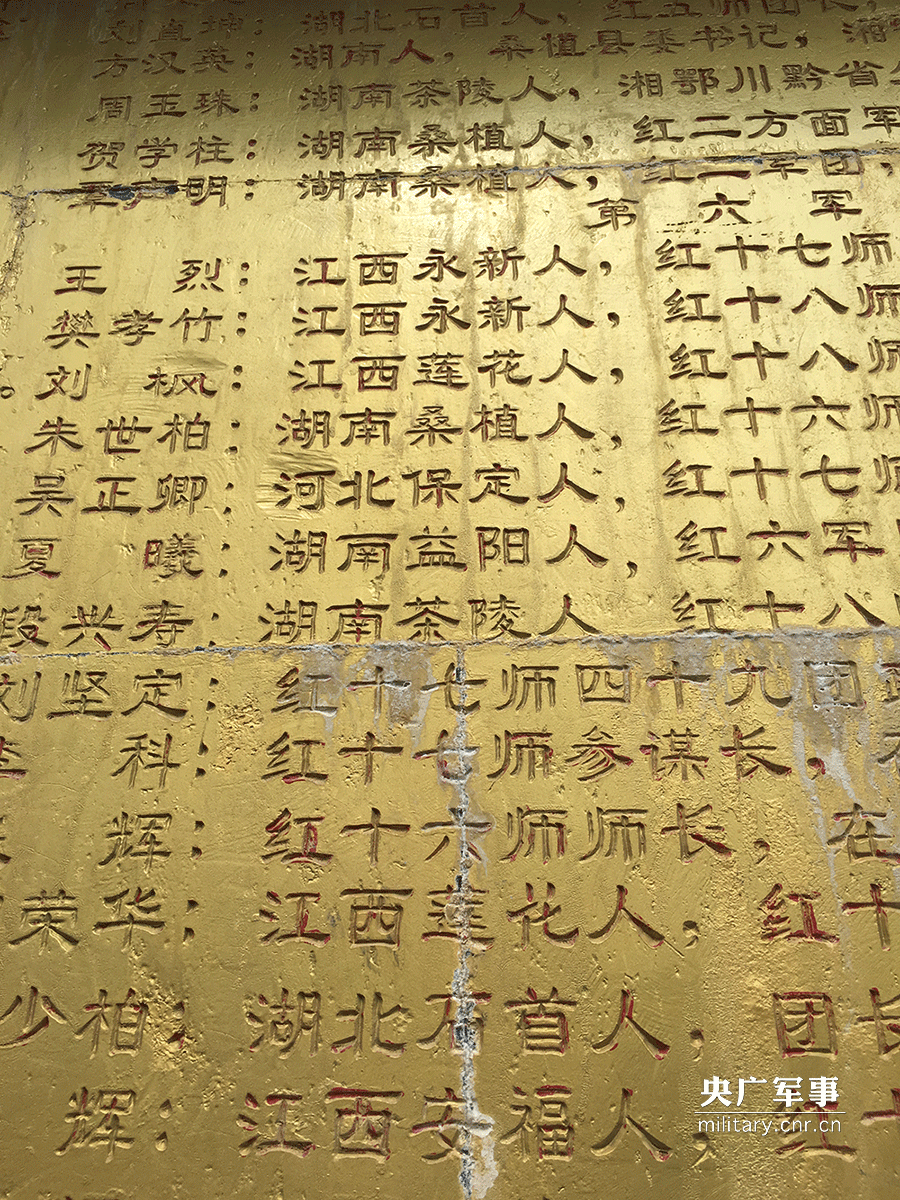 坤：湖北石首人，红五师团长，
方汉英：湖南人，桑植县委书记，湘
周玉珠：湖南茶陵人，湘鄂川黔省
贺学柱：湖南桑植人，红二方面军
明：湖南桑植人，红二军团，
第六军
王烈：江西永新人，红十七师
樊孝竹：江西永新人，红十八师
。刘枫：江西莲花人，红十八师
朱世柏：湖南桑植人，红十六师
吴正卿：河北保定人，红十七师
夏曦：湖南益阳人，红六军
段兴寿：湖南茶陵人 红十八
刘坚定：红十七师四十九团政
科：红十七师参谋长，在
辉：红十六师师长，在
荣华：江西莲花人；红十
少柏：湖北石首人；团长
辉：江西安福人；红十
央广军事
military.cnr.cn